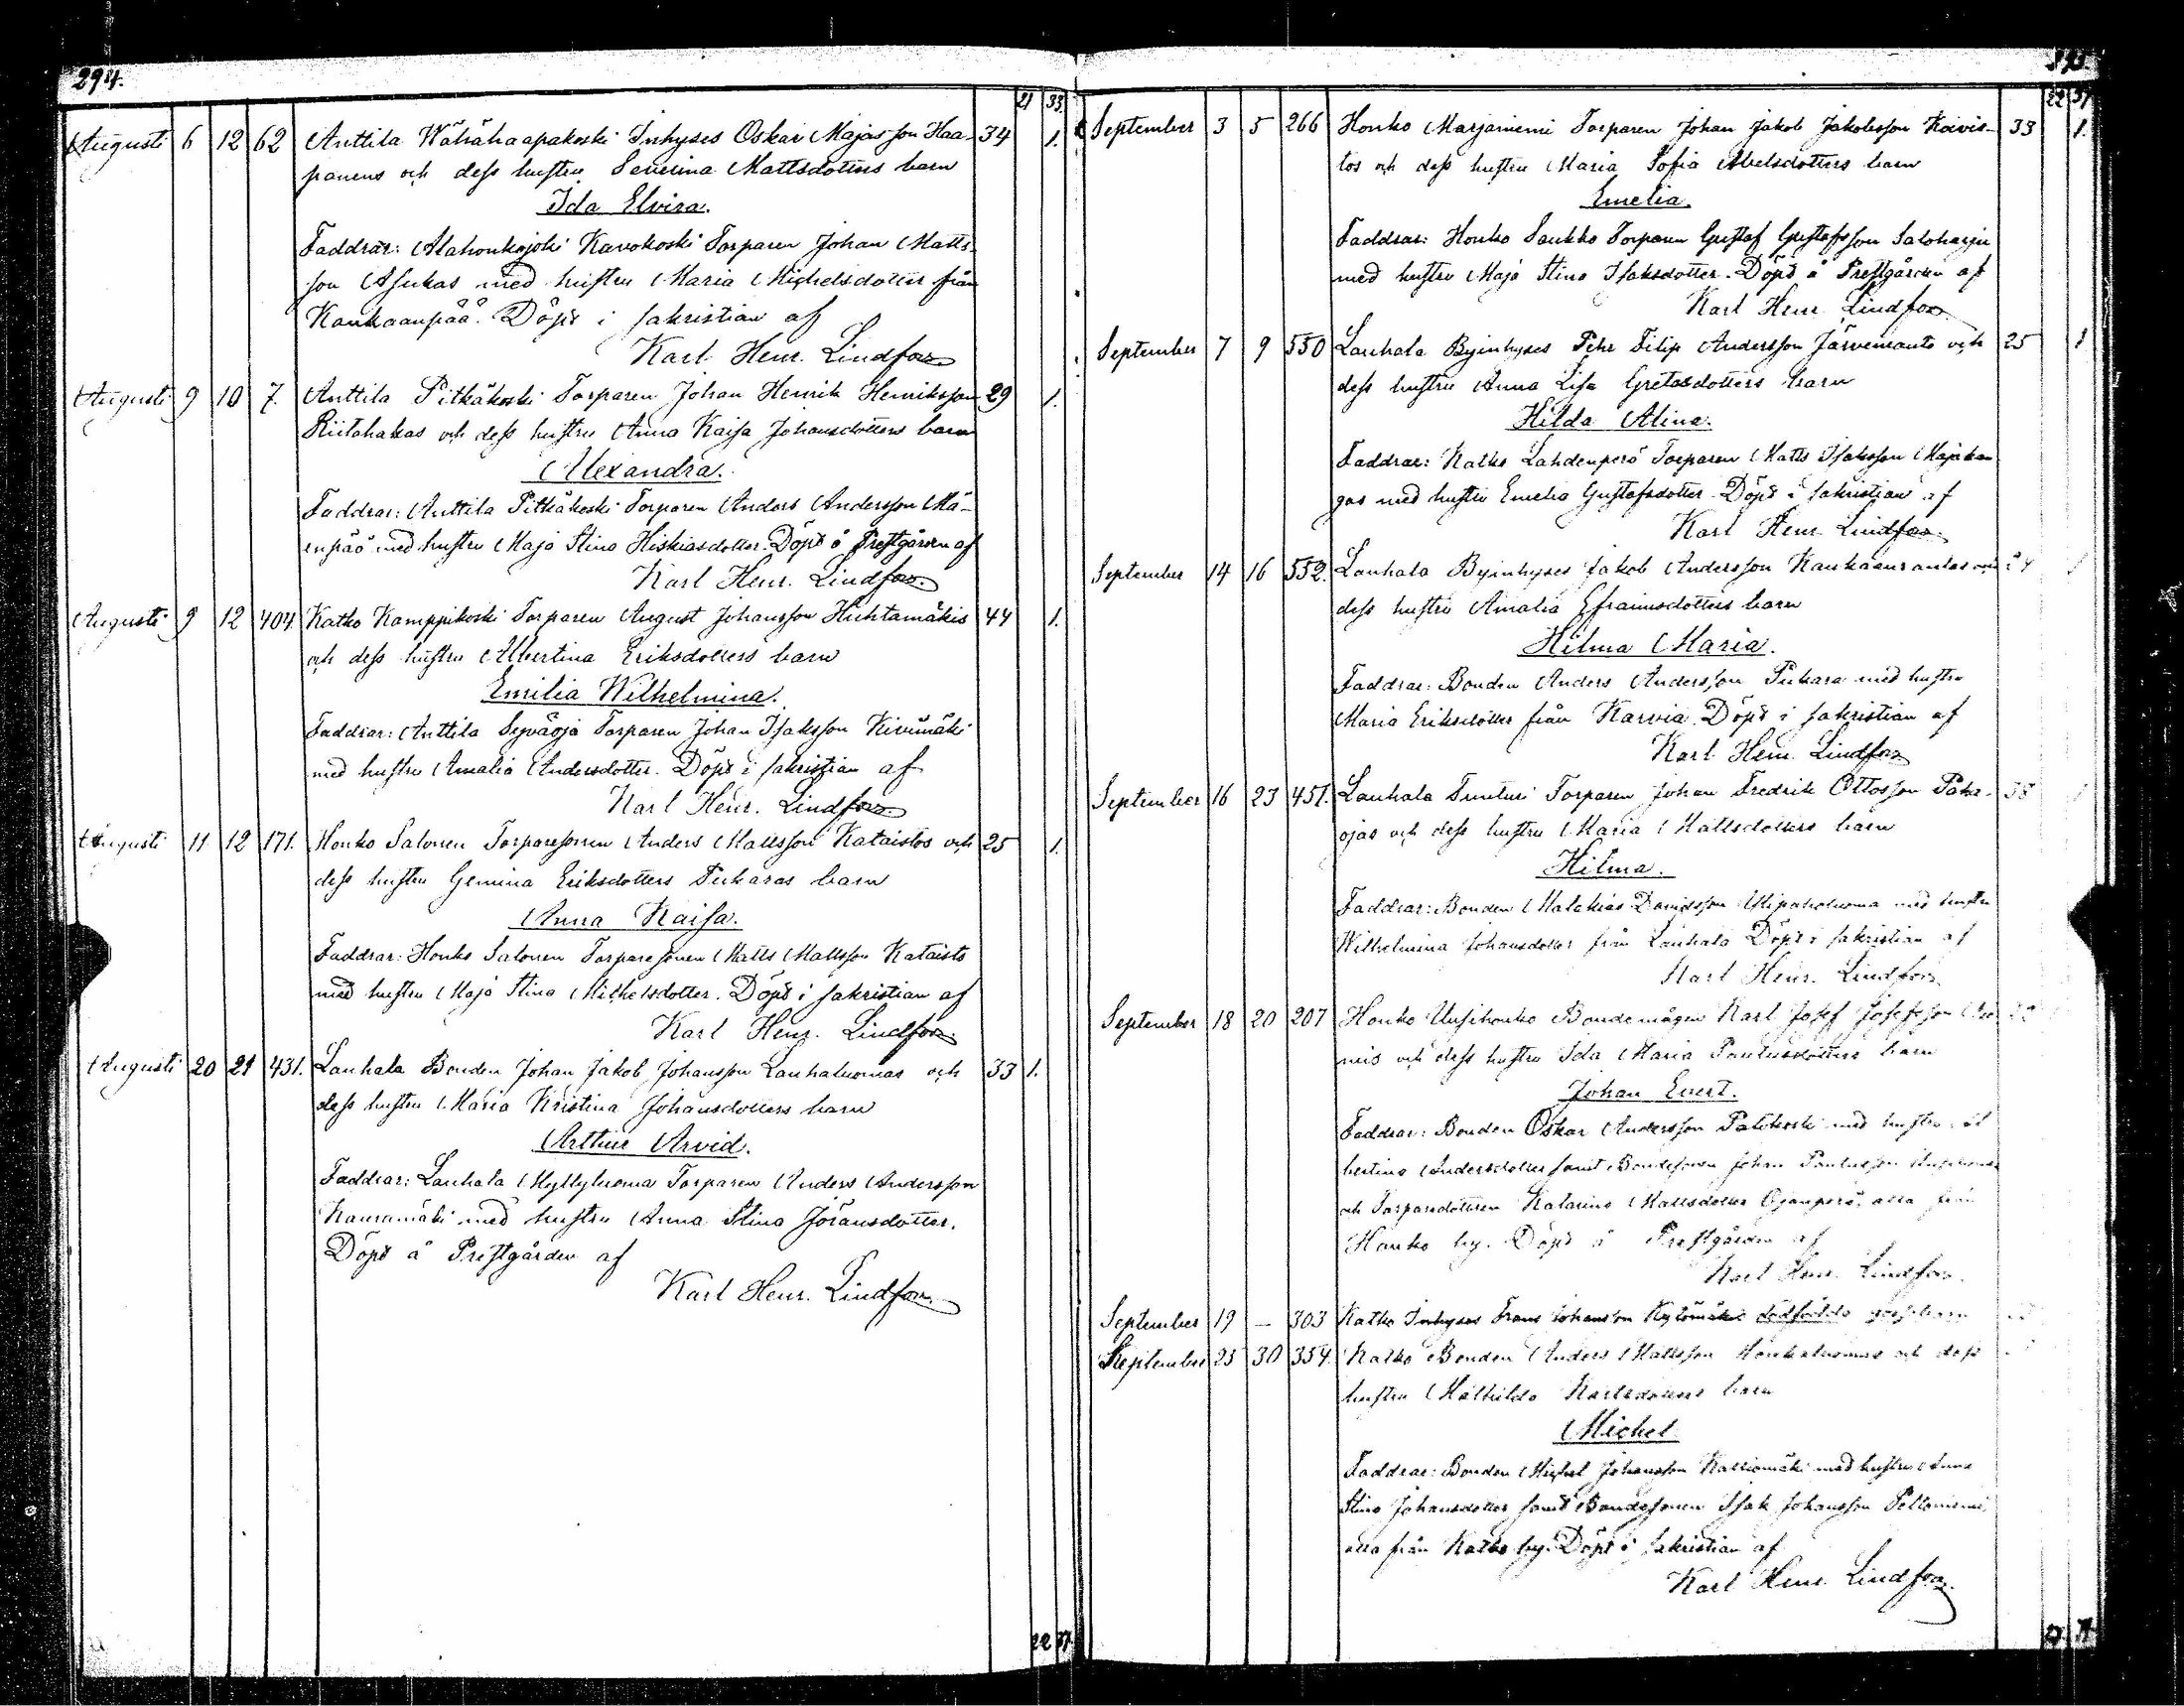 294.
21 33
Augusti 6 12 62 Anttila Wähähaapakoski Inhyses Oskar Majasson Haa- 34 1.
panens och dess hustru Severina Mattsdotters barn
Ida Elvira.
Faddrar: Alahonkajoki Kavokoski Torparen Johan Matts-
son Asukas med hustru Maria Michelsdotter från
Kankaanpää. Döpt i sakristian af
Karl Henr. Lindfors
Augusti 9 10 7. Anttila Pitkäkoski Torparen Johan Henrik Henriksson 29 1.
Riitahakas och dess hustru Anna Kaisa Johansdotters barn
Alexandra.
Faddrar: Anttila Pitkäkoski Torparen Anders Andersson Mä-
enpää med hustru Maja Stina Hiskiasdotter. Döpt å Prestgården af
Karl Henr. Lindfors.
Augusti 9 12 404. Katko Kamppikoski Torparen August Johansson Huhtamäkis 44 1.
och dess hustru Albertina Eriksdotters barn
Emilia Wilhelmina.
Faddrar: Anttila Syväoja Torparen Johan Isaksson Kivimäki
med hustru Amalia Andersdotter. Döpt i sakristian af
Karl Henr. Lindfors
Augusti 11 12 171. Honko Salonen Torparesonen Anders Mattsson Kataistos och 25 1.
dess hustru Gemina Eriksdotters Pukaras barn
Anna Kaisa.
Faddrar: Honko Salonen Torparesonen Matts Mattsson Kataisto
med hustru Maja Stina Michelsdotter. Döpt i sakristian af
Karl Henr. Lindfors.
Augusti 20 21 431. Lauhala Bonden Johan Jakob Johansson Lauhaluomas och 33 1.
dess hustru Maria Kristina Johansdotters barn
Arthur Arvid.
Faddrar: Lauhala Myllyluoma Torparen Anders Andersson
Kauramäki med hustru Anna Stina Göransdotter.
Döpt å Prestgården af
Karl Henr. Lindfors.
22 37
22 37
September 3 5 266 Honko Marjaniemi Torparen Johan Jakob Jakobsson Koivis- 33 1.
tos och dess hustru Maria Sofia Abelsdotters barn
Emelia.
Faddrar: Honko Saukko Torparen Gustaf Gustafsson Saloharju
med hustru Maja Stina Isaksdotter. Döpt å Prestgården af
Karl Henr. Lindfors
September 7 9 550 Lauhala Byinhyses Pehr Filip Andersson Järvenranta och 25 1
dess hustru Anna Lisa Gretasdotters barn
Hilda Alina.
Faddrar: Katko Lahdenperä Torparen Matts Isaksson Majakan
gas med hustru Emelia Gustafsdotter. Döpt i sakristian af
Karl Henr. Lindfors.
September 14 16 552. Lauhala Byinhyses Jakob Andersson
dess hustru Amalia Efraimsdotters barn
Hilma Maria.
Faddrar: Bonden Anders Andersson Pukara med hustru
Maria Eriksdotter från Karvia. Döpt i sakristian af
Karl Henr. Lindfors
September 16 23 451. Lauhala Tunturi Torparen Johan Fredrik Ottosson Paka- 38
ojas och dess hustru Maria Mattsdotters barn
Hilma.
Faddrar: Bonden Malakias Davidsson med hustru
Wilhelmina Johansdotter från Lauhala Döpt i sakristian af
Karl Henr. Lindfors
September 18 20 207 Honko Uusihonko Bondemågen Karl Josef Josefsson
mis och dess hustru Ida Maria Paulusdotters barn
Johan Evert.
Faddrar: Bonden Oskar Andersson Patokoski med hustru Al
bertina Andersdotter samt Bondesonen Johan Paulusson
och Torparedottern Katarina Mattsdotter Ojanperä, alla från
Honko by. Döpt å Prestgården af
Karl Henr. Lindfors.
September 19 — 303 Katko Inhyses Frans Johansson Kytömäkis dödfödda gossebarn
September 25 30 354. Katko Bonden Anders Mattsson Honkaluomas och dess
hustru Mathilda Karlsdotters barn
Michel
Faddrar: Bonden Michel Johansson Kalliomäki med hustru Anna
Stina Johansdotter samt Bondesonen Isak Johansson Peltoniemi,
alla från Katko by. Döpt i sakristian af
Karl Henr. Lindfors.